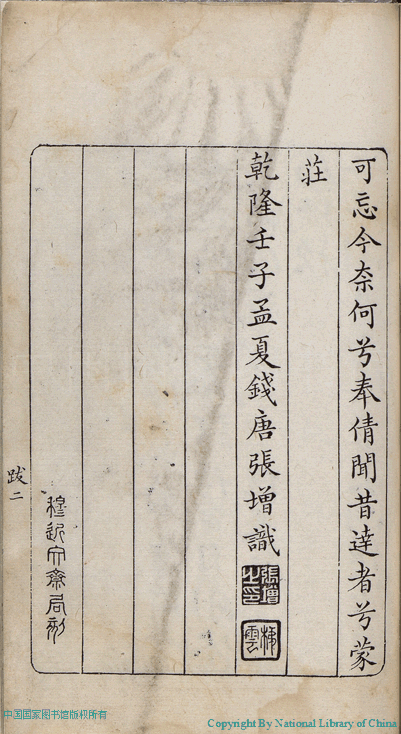 可忘今奈何兮奉倩聞昔逹者兮蒙
莊
乾隆壬子孟夏錢唐張增識
張增之印
雲
穆近文齋局刻
跋二
中国国家图书馆版权所有
Copyright By National Library of China